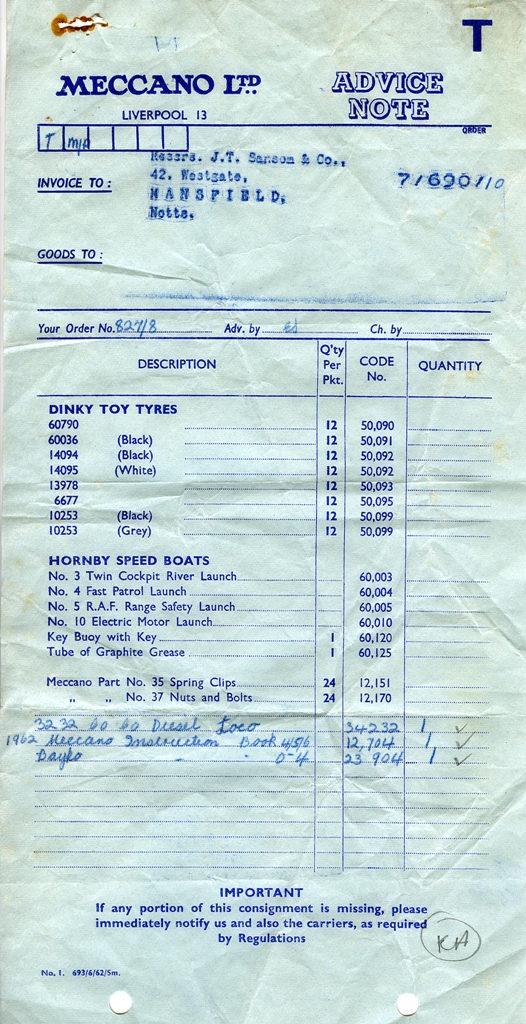 T
MECCANO LTD.
ADVICE
NOTE
LIVERPOOL 13
ORDER
T M/A
INVOICE TO :
Messrs. J.T. Sansom & Co.,
42, Westgate,
MANSFIELD,
Notts.
7/690/10
GOODS TO :
Your Order No. 827/8 Adv. by Ch. by
DESCRIPTION Q'ty Per Pkt. CODE No. QUANTITY
DINKY TOY TYRES
60790 12 50,090
60036 (Black) 12 50,091
14094 (Black) 12 50,092
14095 (White) 12 50,092
13978 12 50,093
6677 12 50,095
10253 (Black) 12 50,099
10253 (Grey) 12 50,099
HORNBY SPEED BOATS
No. 3 Twin Cockpit River Launch 60,003
No. 4 Fast Patrol Launch 60,004
No. 5 R.A.F. Range Safety Launch 60,005
No. 10 Electric Motor Launch 60,010
Key Buoy with Key 1 60,120
Tube of Graphite Grease 1 60,125
Meccano Part No. 35 Spring Clips 24 12,151
„ „ No. 37 Nuts and Bolts 24 12,170
3232 Co Co Diesel Loco 34232 1 ✓
1962 Meccano Instruction Book 4/5/6 12,704 1 ✓
Bayko " " 0-4 23 904 1 ✓
IMPORTANT
If any portion of this consignment is missing, please
immediately notify us and also the carriers, as required
by Regulations
KA
No. 1. 693/6/62/5m.